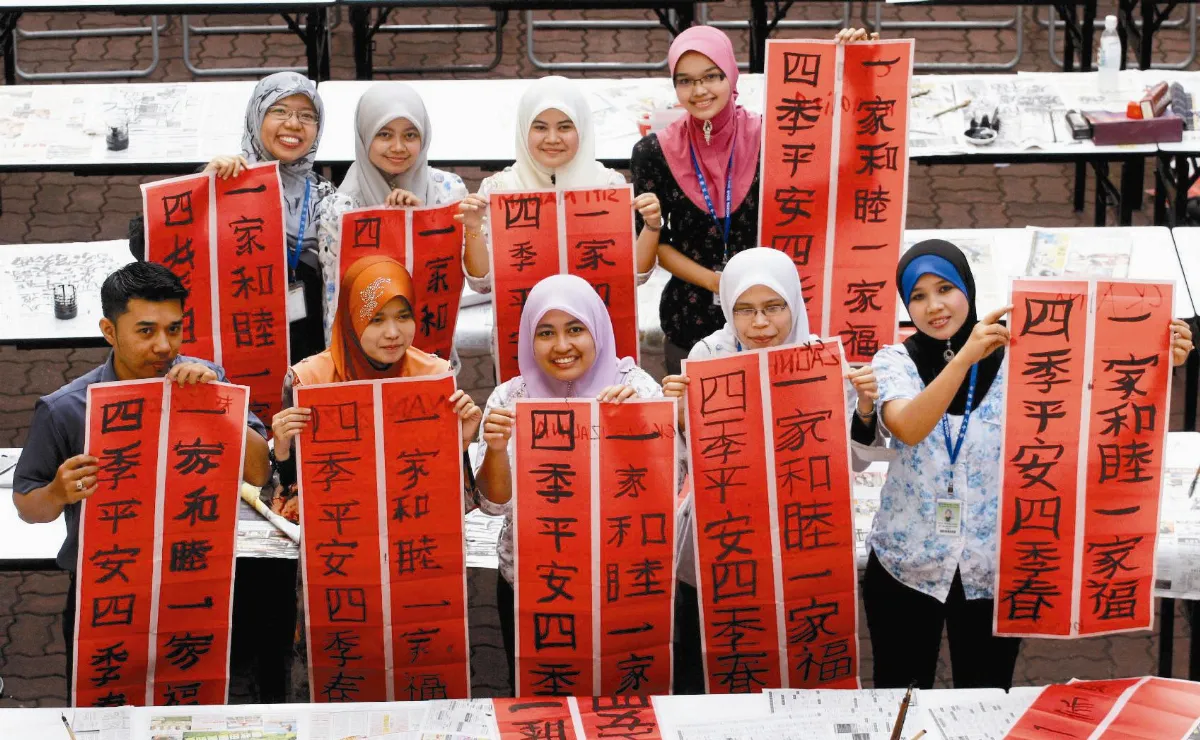 一家和睦一
四
一家和
四
一家
四季平
一家和睦一家福
四季平安四
一家和睦一家福
四季平安四季春
一家和睦一家福
四季平安四季春
一家和睦一家
四季平安四季
一家和睦一家福
四季平安四季春
一家和睦一家福
四季平安四季春